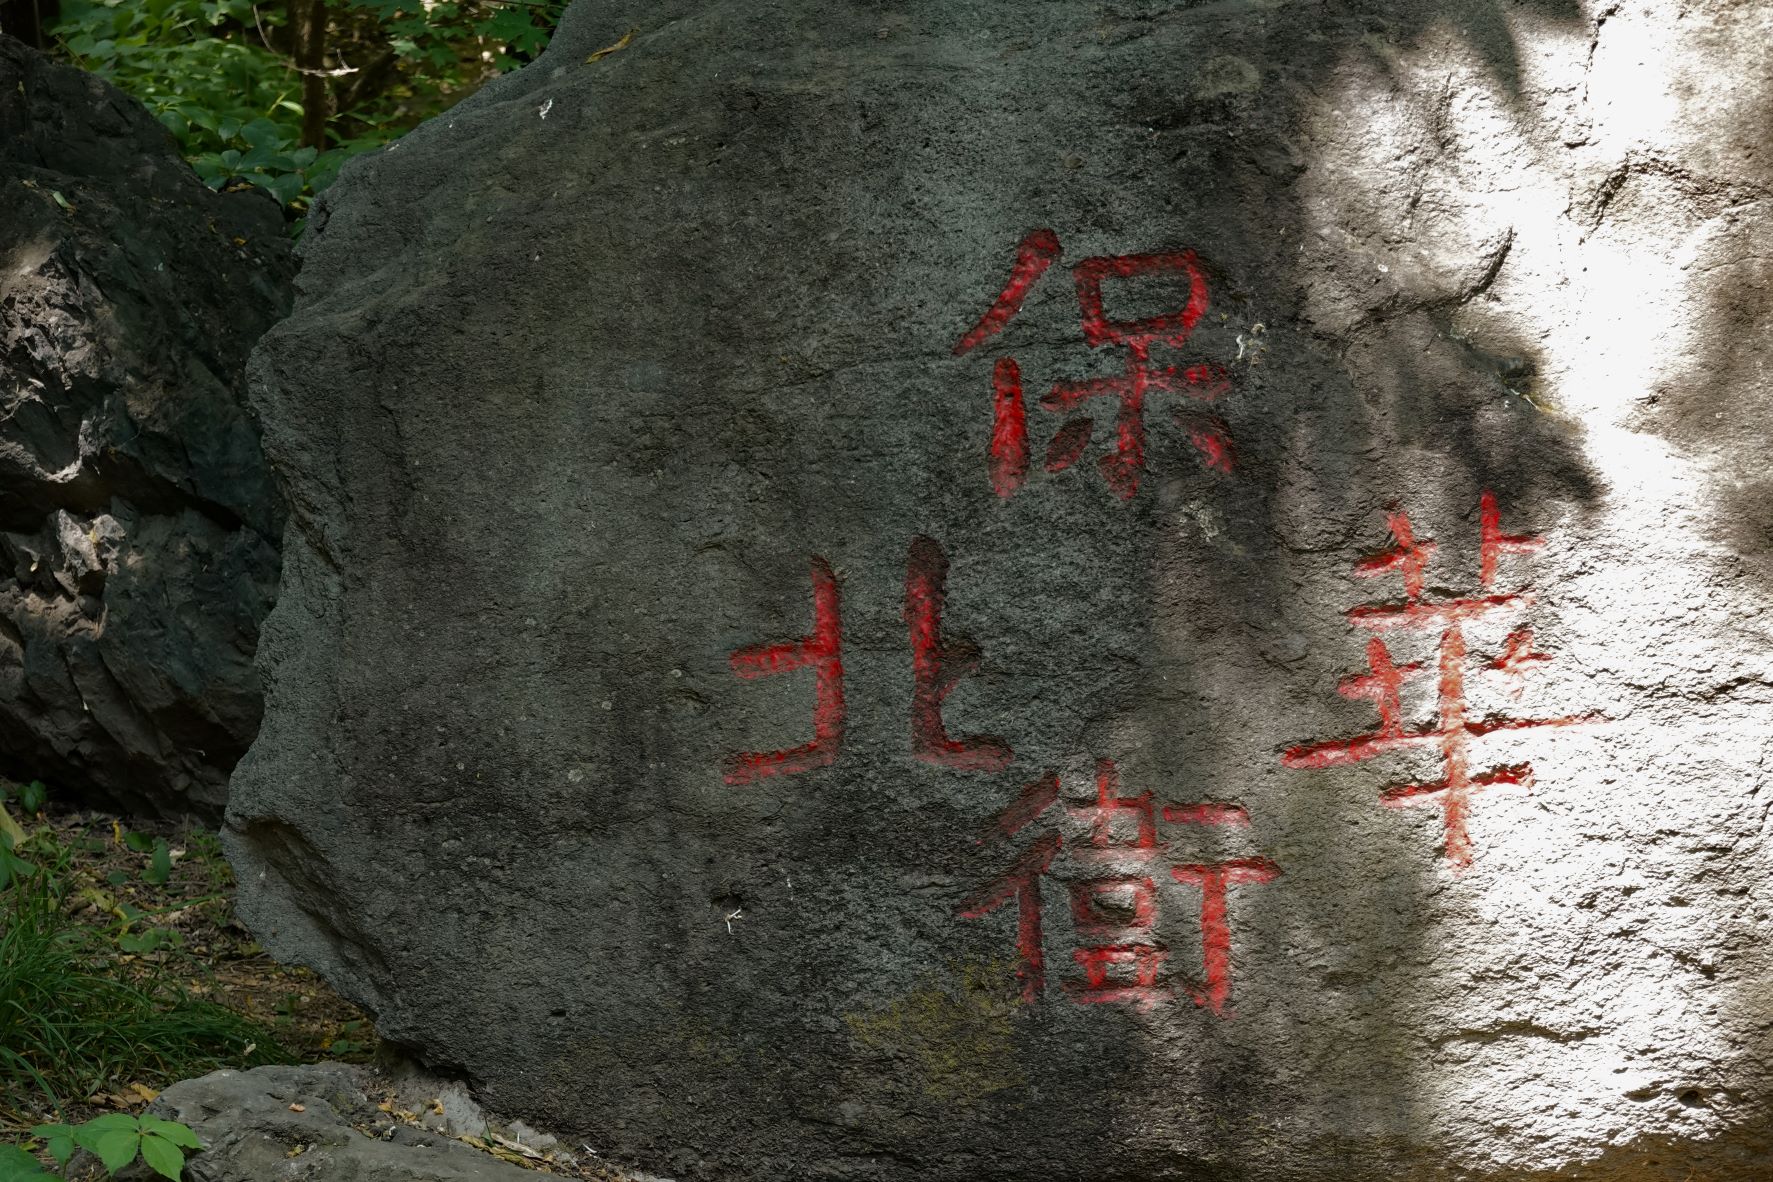 保衛
華北